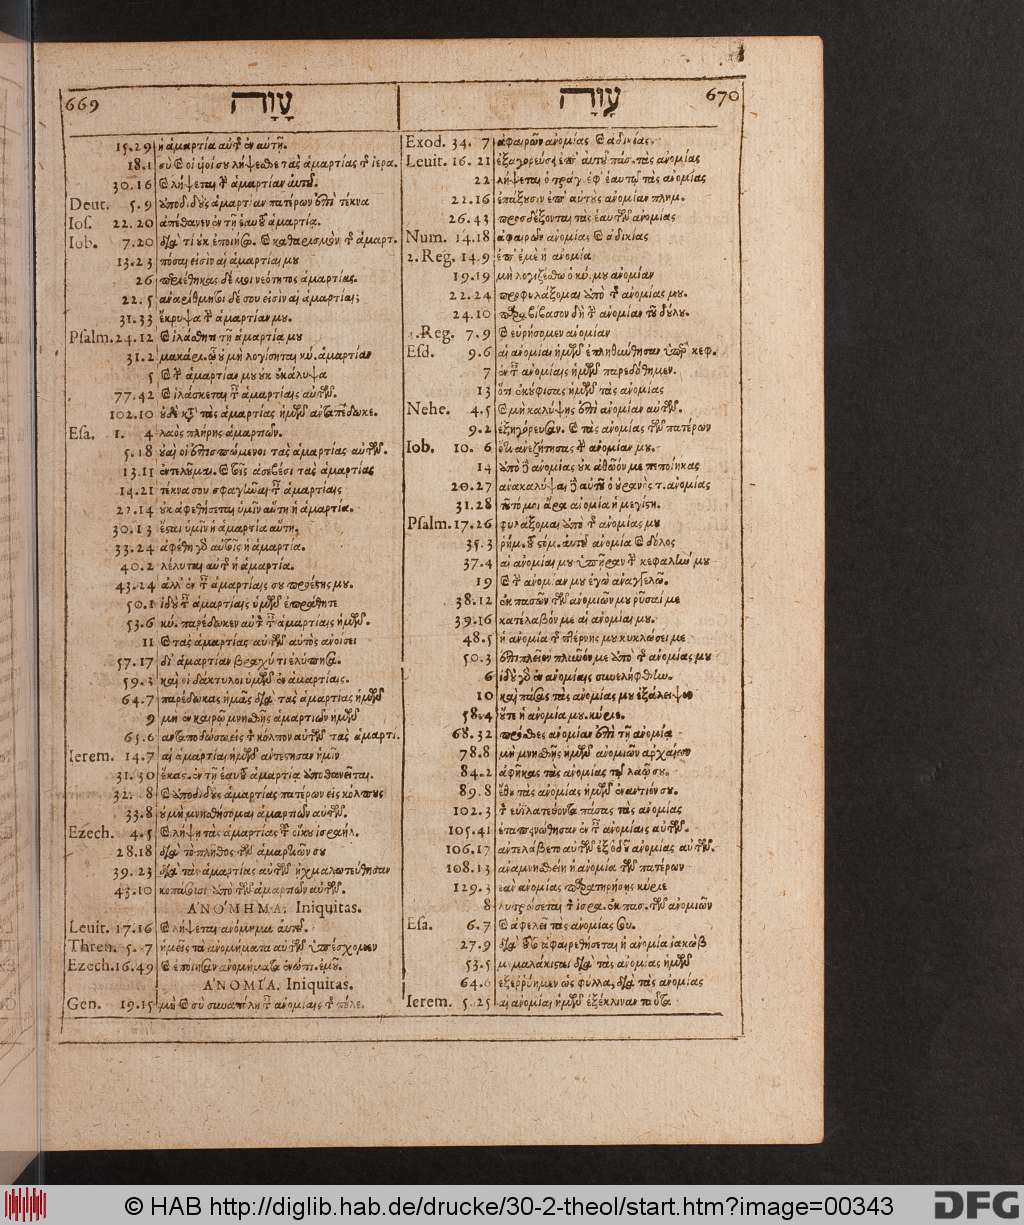 669 עָוָה
15.29 ἡ ἁμαρτία αὐτῆς ἐν αὐτῇ.
18.1 σὺ καὶ οἱ υἱοί σου λήψεσθε τὰς ἁμαρτίας τῆς ἱερα.
30.16 καὶ λήψεται τὴν ἁμαρτίαν αὐτοῦ.
Deut. 5.9 ἀποδιδοὺς ἁμαρτίαν πατέρων ἐπὶ τέκνα
Ios. 22.20 ἀπέθανεν ἐν τῇ ἑαυτοῦ ἁμαρτίᾳ.
Iob. 7.20 διὰ τί οὐκ ἐποίησω. καὶ καθαρισμὸν τῆς ἁμαρτ.
13.23 πόσαι εἰσὶν αἱ ἁμαρτίαι μου
26 περιέθηκας δέ μοι νεότητος ἁμαρτίας.
22.5 ἀναρίθμητοι δέ σου εἰσὶν αἱ ἁμαρτίαι;
31.33 ἔκρυψα τὴν ἁμαρτίαν μου.
Psalm. 24.12 καὶ ἱλάσθητι τῇ ἁμαρτίᾳ μου
31.2 μακάρι. ᾧ οὐ μὴ λογίσηται κύ. ἁμαρτίαν
5 καὶ τὴν ἁμαρτίαν μου οὐκ ἐκάλυψα
77.42 καὶ ἱλάσκεται ταῖς ἁμαρτίαις αὐτῶν.
102.10 οὐδὲ κατὰ τὰς ἁμαρτίας ἡμῶν ἀνταπέδωκε.
Esa. 1. 4 λαὸς πλήρης ἁμαρτιῶν.
5.18 οὐαὶ οἱ ἐπισπώμενοι τὰς ἁμαρτίας αὐτῶν.
13.11 ἐντελοῦμαι. καὶ τοῖς ἀσεβέσι τὰς ἁμαρτίας
14.21 τέκνα σου σφαγῶναι ταῖς ἁμαρτίαις
22.14 οὐκ ἀφεθήσεται ὑμῖν αὕτη ἡ ἁμαρτία.
30.13 ἔσται ὑμῖν ἡ ἁμαρτία αὕτη,
33.24 ἀφέθη γὰρ αὐτοῖς ἡ ἁμαρτία.
40.2 λέλυται αὐτῆς ἡ ἁμαρτία.
43.24 ἀλλ' ἐν ταῖς ἁμαρτίαις σου προέστης μου.
50.1 ἰδοὺ ταῖς ἁμαρτίαις ὑμῶν ἐπράθητε
53.6 κύ. παρέδωκεν αὐτὸν ταῖς ἁμαρτίαις ἡμῶν.
11 καὶ τὰς ἁμαρτίας αὐτῶν αὐτὸς ἀνοίσει
57.17 δι' ἁμαρτίαν βραχύ τι ἐλύπησα.
59.3 καὶ οἱ δάκτυλοι ὑμῶν ἐν ἁμαρτίαις.
64.7 παρέδωκας ἡμᾶς διὰ τὰς ἁμαρτίας ἡμῶν
9 μὴ ἐν καιρῷ μνησθῇς ἁμαρτιῶν ἡμῶν
65.6 ἀνταποδώσω εἰς τὸν κόλπον αὐτῶν τὰς ἁμαρτί.
Ierem. 14.7 αἱ ἁμαρτίαι ἡμῶν ἀντέστησαν ἡμῖν
31.30 ἕκας. ἐν τῇ ἑαυτοῦ ἁμαρτίᾳ ἀποθανεῖται.
32. 8 καὶ ἀποδιδοὺς ἁμαρτίας πατέρων εἰς κόλπους
33.8 οὐ μὴ μνησθήσομαι ἁμαρτιῶν αὐτῶν.
Ezech. 4.5 καὶ λήψῃ τὰς ἁμαρτίας τοῦ οἴκου ἰσραήλ.
28.18 διὰ τὸ πλῆθος τῶν ἁμαρτιῶν σου
39.23 διὰ τὰς ἁμαρτίας αὐτῶν ᾐχμαλωτεύθησαν
43.10 κοπάσουσι ἀπὸ τῶν ἁμαρτιῶν αὐτῶν.
ἈΝΟΜΗΜΑ, Iniquitas.
Leuit. 17.16 καὶ λήψεται ἀνόμημα αὐτοῦ.
Thren. 5. 7 ἡμεῖς τὰ ἀνομήματα αὐτῶν ὑπέσχομεν
Ezech. 16.49 καὶ ἐποίησαν ἀνομήματα ἐνώπι. ἐμοῦ.
ἈΝΟΜΙΑ, Iniquitas.
Gen. 19.15 μὴ καὶ σὺ συναπόλῃ ταῖς ἀνομίαις τῆς πόλε.
עָוָה 670
Exod. 34. 7 ἀφαιρῶν ἀνομίας καὶ ἀδικίας.
Leuit. 16. 21 ἐξαγορεύσει ἐπ' αὐτοῦ πάσ. τὰς ἀνομίας
22 λήψεται ὁ τράγ. ἐφ' ἑαυτῷ τὰς ἀνομίας
22.16 ἐπάξουσιν ἐπ' αὐτοὺς ἀνομίαν πλημ.
26.43 προσδέξονται τὰς ἑαυτῶν ἀνομίας
Num. 14.18 ἀφαιρῶν ἀνομίας καὶ ἀδικίας
2. Reg. 14.9 ἐπ' ἐμὲ ἡ ἀνομία
19.19 μὴ λογιζέσθω ὁ κύ. μου ἀνομίαν
22.24 προφυλάξομαι ἀπὸ τῆς ἀνομίας μου.
24.10 παραβίβασον δὴ τὴν ἀνομίαν τοῦ δούλου.
.Reg. 7.9 καὶ εὑρήσομεν ἀνομίαν
Esd. 9.6 αἱ ἀνομίαι ἡμῶν ἐπληθύνθησαν ὑπὲρ κεφ.
7 ἐν ταῖς ἀνομίαις ἡμῶν παρεδόθημεν.
13 ὅτι ἐκούφισας ἡμῶν τὰς ἀνομίας
Nehe. 4.5 καὶ μὴ καλύψῃς ἐπὶ ἀνομίαν αὐτῶν.
9.2 ἐξηγόρευσαν. καὶ τὰς ἀνομίας τῶν πατέρων
Iob. 10. 6 ὅτι ἀνεζήτησας τὴν ἀνομίαν μου.
14 ἀπὸ δὲ ἀνομίας οὐκ ἀθῷόν με πεποίηκας
20.27 ἀνακαλύψαι δὲ αὐτοῦ ὁ οὐρανὸς τ. ἀνομίας
31.28 τοῦτό μοι ἄρα ἀνομία ἡ μεγίστη.
Psalm. 17.26 φυλάξομαι ἀπὸ τῆς ἀνομίας μου
35.3 ῥήμ. τοῦ στόμ. αὐτοῦ ἀνομία καὶ δόλος
37.4 αἱ ἀνομίαι μου ὑπερῆραν τὴν κεφαλήν μου
19 καὶ τὴν ἀνομίαν μου ἐγὼ ἀναγγελῶ.
38.12 ἐκ πασῶν τῶν ἀνομιῶν μου ῥῦσαί με
39.16 κατέλαβόν με αἱ ἀνομίαι μου.
48.5 ἡ ἀνομία τῆς πτέρνης μου κυκλώσει με
50.3 ἐπὶ πλεῖον πλῦνόν με ἀπὸ τῆς ἀνομίας μου
6 ἰδοὺ γὰρ ἐν ἀνομίαις συνελήφθην.
10 καὶ πάσας τὰς ἀνομίας μου ἐξάλειψον
58.4 οὔτε ἡ ἀνομία μου. κύριε.
68.32 πρόσθες ἀνομίαν ἐπὶ τῇ ἀνομίᾳ
78.8 μὴ μνησθῇς ἡμῶν ἀνομιῶν ἀρχαίων
84.2 ἀφῆκας τὰς ἀνομίας τῷ λαῷ σου.
89.8 ἔθου τὰς ἀνομίας ἡμῶν ἐναντίον σου.
102.3 τὸν εὐϊλατεύοντα πάσας τὰς ἀνομίας
105.41 ἐταπεινώθησαν ἐν ταῖς ἀνομίαις αὐτῶν.
106.17 ἀντελάβετο αὐτῶν ἐξ ὁδοῦ ἀνομίας αὐτῶν.
108.13 ἀναμνησθείη ἡ ἀνομία τῶν πατέρων
129.3 ἐὰν ἀνομίας παρατηρήσῃς κύριε
8 λυτρώσεται τὸν ἰσρα. ἐκ πασ. τῶν ἀνομιῶν
Esa. 6.7 καὶ ἀφελεῖ τὰς ἀνομίας σου.
27.9 διὰ τοῦτο ἀφαιρεθήσεται ἡ ἀνομία ἰακώβ
53.5 μεμαλάκισται διὰ τὰς ἀνομίας ἡμῶν
64.6 ἐξερρύημεν ὡς φύλλα, διὰ τὰς ἀνομίας
Ierem. 5.25 αἱ ἀνομίαι ἡμῶν ἐξέκλιναν ταῦτα
© HAB http://diglib.hab.de/drucke/30-2-theol/start.htm?image=00343
DFG